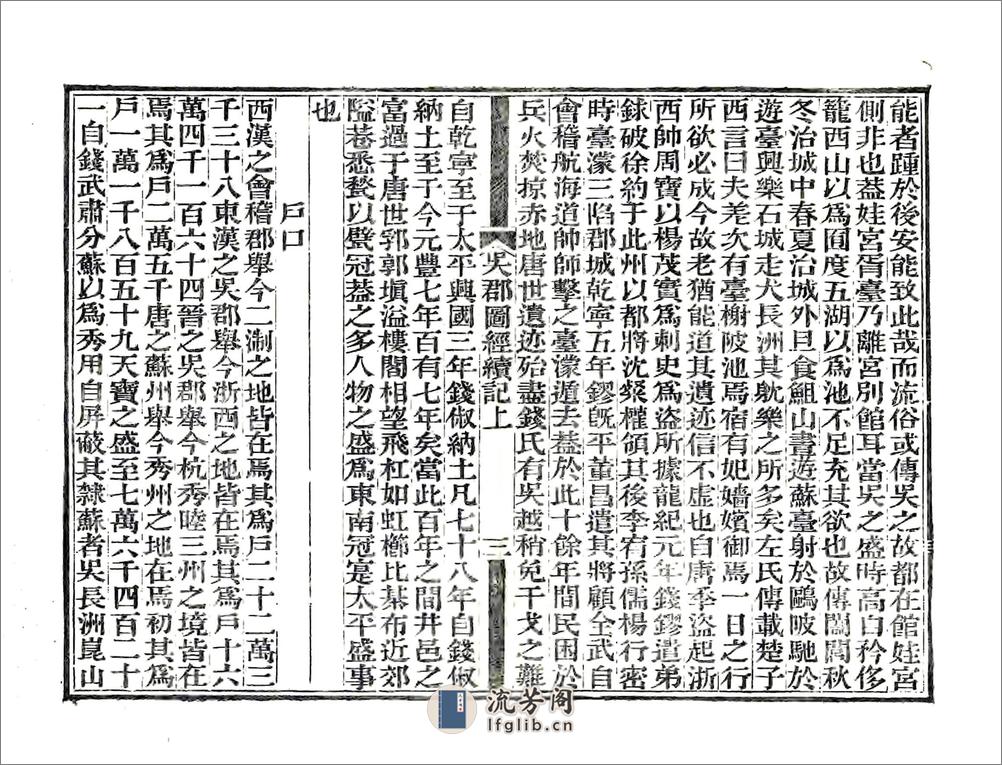 能者踵於後安能致此哉而流俗或傳吳之故都在館娃宮
側非也葢娃宮胥臺乃離宮別館耳當吳之盛時高自矜侈
籠西山以為囿度五湖以為池不足充其欲也故傳闔閭秋
冬治城中春夏治城外旦食䱉山晝遊蘇臺射於鷗陂馳於
遊臺興樂石城走犬長洲其躭樂之所多矣左氏傳載楚子
西言曰夫差次有臺榭陂池焉宿有妃嬙嬪御焉一日之行
所欲必成今故老猶能道其遺迹信不虛也自唐季盜起浙
西帥周寶以楊茂實為刺史為盜所據龍紀元年錢鏐遣弟
銶破徐約于此州以都將沈粲權領其後李宥孫儒楊行密
時臺濛三陷郡城乾寧五年鏐旣平董昌遣其將顧全武自
會稽航海道帥師擊之臺濛遁去葢於此十餘年間民困於
兵火焚掠赤地唐世遺迹殆盡錢氏有吳越稍免干戈之難
吳郡圖經續記上
三
自乾寧至于太平興國三年錢俶納土凡七十八年自錢俶
納土至于今元豐七年百有七年矣當此百年之間井邑之
富過于唐世郛郭塡溢樓閣相望飛杠如虹櫛比棊布近郊
隘巷悉甃以甓冠葢之多人物之盛為東南冠寔太平盛事
也
戶口
西漢之會稽郡舉今二淛之地皆在焉其為戶二十二萬三
千三十八東漢之吳郡舉今浙西之地皆在焉其為戶十六
萬四千一百六十四晉之吳郡舉今杭秀睦三州之境皆在
焉其為戶二萬五千唐之蘇州舉今秀州之地在焉初其為
戶一萬一千八百五十九天寶之盛至七萬六千四百二十
一自錢武肅分蘇以為秀用自屏蔽其隸蘇者吳長洲崑山
流芳閣
lfglib.cn